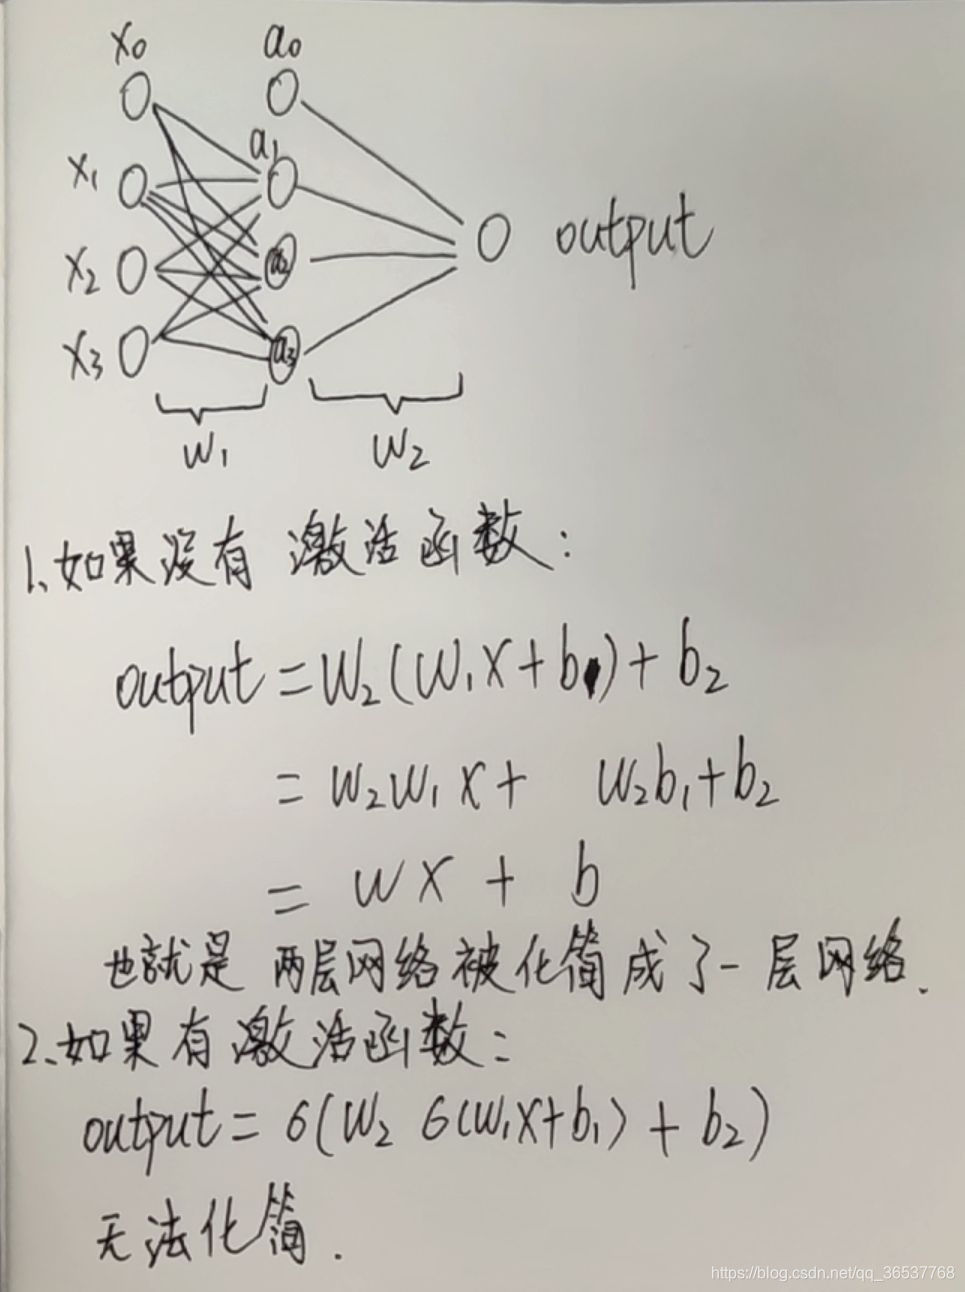 x₀ a₀
a₁
x₁
output
x₂ a₂
x₃ a₃
W₁ W₂
1、如果没有激活函数：
output = W₂(W₁X+b₁)+b₂
= W₂W₁X+ W₂b₁+b₂
= WX + b
也就是两层网络被化简成了一层网络.
2、如果有激活函数：
output = σ(W₂ σ(W₁X+b₁) + b₂)
无法化简.
https://blog.csdn.net/qq_36537768